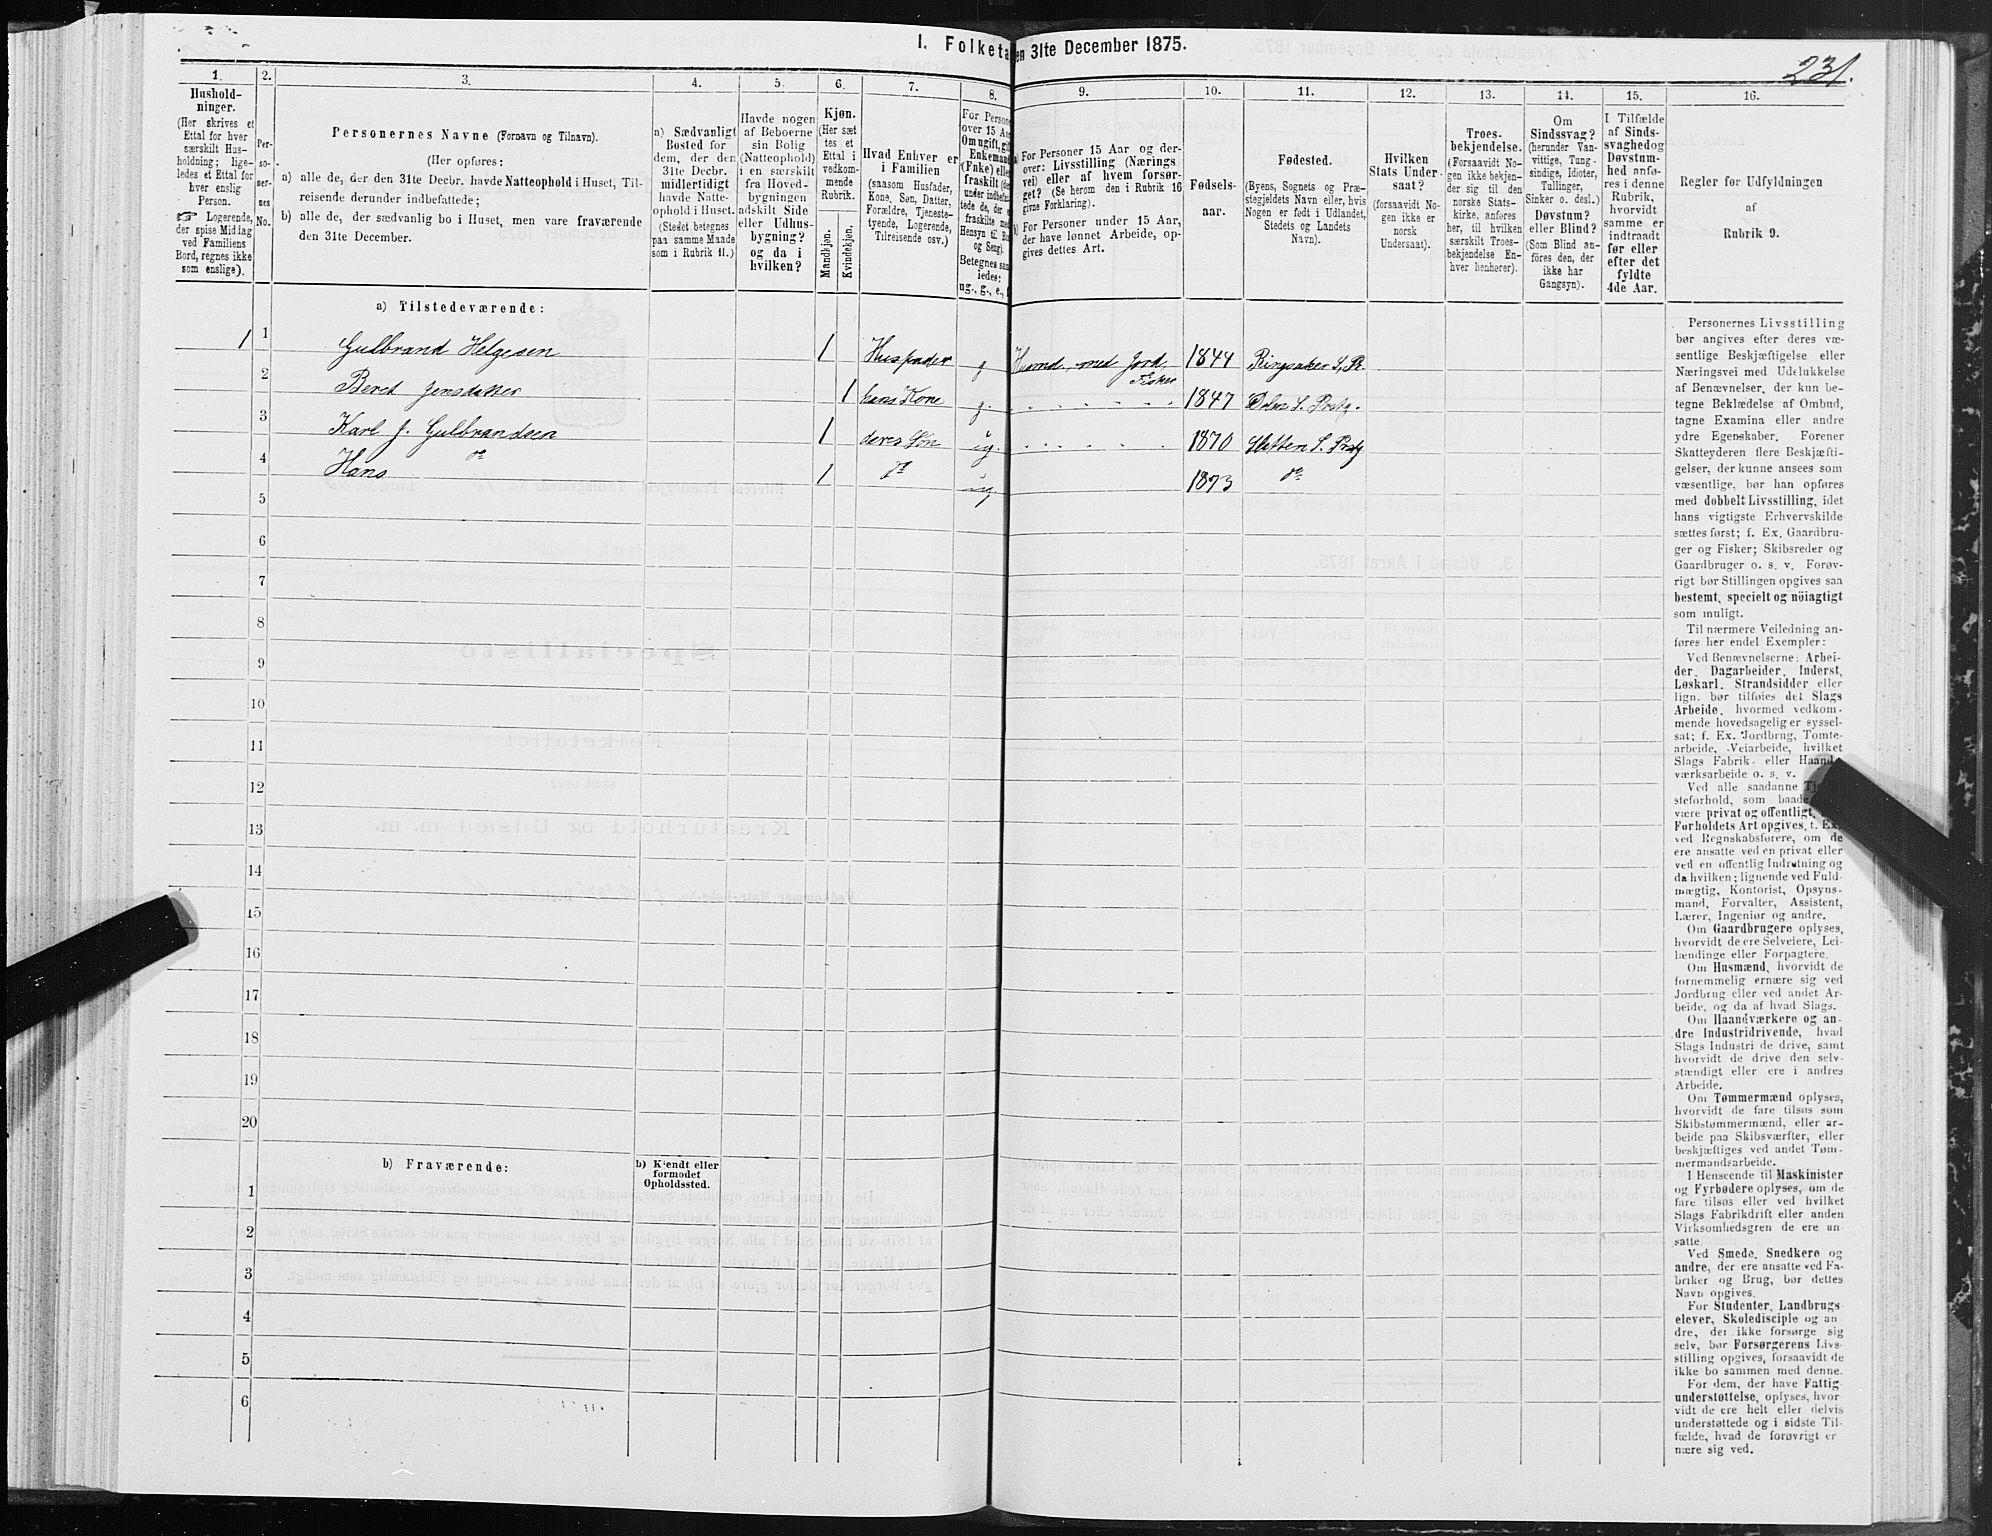 I. Folketa
en 31te December 1875.
231.
1.
2.
3.
4.
5.
6.
7.
8.
9.
10.
11.
12.
13.
14.
15.
16.
Hushold-
ninger.
(Her skrives et
Ettal for hver
særskilt Hus-
holdning; lige-
ledes et Ettal for
hver enslig
Person.
☞ Logerende,
der spise Middag
ved Familiens
Bord, regnes ikke
som enslige).
Per-
so-
ner-
nes
No.
Personernes Navne (Fornavn og Tilnavn).
(Her opføres:
a) alle de, der den 31te Decbr. havde Natteophold i Huset, Til-
reisende derunder indbefattede;
b) alle de, der sædvanlig bo i Huset, men vare fraværende
den 31te December.
a) Sædvanligt
Bosted for
dem, der den
31te Decbr.
midlertidigt
havde Natte-
ophold i Huset.
(Stedet betegnes
paa samme Maade
som i Rubrik 11.)
Havde nogen
af Beboerne
sin Bolig
(Natteophold)
i en særskilt
fra Hoved-
bygningen
adskilt Side
eller Udhus-
bygning?
og da i
hvilken?
Kjøn.
(Her sæt
tes et
Ettal i
vedkom-
mende
Rubrik.
Mandkjøn.
Kvindekjøn.
Hvad Enhver er
i Familien
(saasom Husfader,
Kone, Søn, Datter,
Forældre, Tjeneste-
tyende, Logerende,
Tilreisende osv.)
For Persone
over 15 Aa
Om ugift, gif
Enkemand
(Enke) elle
fraskilt (de
under indbefat
tede de, der e
fraskilte me
Hensyn til Bo
og Seng).
Betegnes saa
ledes:
ug., g., e.,
For Personer 15 Aar og der-
over: Livsstilling (Nærings
vei) eller af hvem forsør-
get? (Se herom den i Rubrik 16
givne Forklaring).
For Personer under 15 Aar,
der have lønnet Arbeide, op-
gives dettes Art.
Fødsels-
aar.
Fødested.
(Byens, Sognets og Præ-
stegjeldets Navn eller, hvis
Nogen er født i Udlandet,
Stedets og Landets
Navn).
Hvilken
Stats Under-
saat?
(forsaavidt No-
gen ikke er
norsk
Undersaat).
Troes-
bekjendelse.
(Forsaavidt No-
gen ikke bekjen-
der sig til den
norske Stats-
kirke, anføres
her, til hvilken
særskilt Troes-
bekjendelse En-
hver henhører).
Om
Sindssvag?
(herunder Van-
vittige, Tung-
sindige, Idioter,
Tullinger,
Sinker o. desl.)
Døvstum?
eller Blind?
(Som Blind an-
føres den, der
ikke har
Gangsyn).
I Tilfælde
af Sinds-
svaghed og
Døvstum-
hed anfø-
res i denne
Rubrik,
hvorvidt
samme er
indtraadt
før eller
efter det
fyldte
4de Aar.
Regler for Udfyldningen
af
Rubrik 9.
a) Tilstedeværende:
1 1 Gulbrand Helgesen 1 Husfader g Husmd. med Jord, Fisker 1844 Ringsaker S. Pr.
2 Beret Jensdatter 1 hans Kone g. 1847 S. Prstg.
3 Karl J. Gulbrandsen 1 deres Søn ug. 1870 S. Prstg
4 Hans do 1 do ug 1873 do
5
6
7
8
9
10
11
12
13
14
15
16
17
18
19
20
b) Fraværende:
b) Kjendt eller
formodet
Opholdssted.
1
2
3
4
5
6
Personernes Livsstilling
bør angives efter deres væ-
sentlige Beskjæftigelse eller
Næringsvei med Udelukkelse
af Benævnelser, der kun be-
tegne Beklædelse af Ombud,
tagne Examina eller andre
ydre Egenskaber. Forener
Skatteyderen flere Beskjæfti-
gelser, der kunne ansees som
væsentlige, bør han opføres
med dobbelt Livsstilling, idet
hans vigtigste Erhvervskilde
sættes først; f. Ex. Gaardbru-
ger og Fisker; Skibsreder og
Gaardbruger o. s. v. Forøv-
rigt bør Stillingen opgives saa
bestemt, specielt og nöiagtigt
som muligt.
Til nærmere Veiledning an-
føres her endel Exempler:
Ved Benævnelserne: Arbei-
der, Dagarbeider, Inderst,
Løskarl, Strandsidder eller
lign. bør tilføies det Slags
Arbeide, hvormed vedkom-
mende hovedsagelig er syssel-
sat; f. Ex. Jordbrug, Tomte-
arbeide, Veiarbeide, hvilket
Slags Fabrik- eller Haand-
værksarbeide o. s. v.
Ved alle saadanne Tj
steforhold, som baade
være privat og offentligt,
Forholdets Art opgives, f. Ex.
ved Regnskabsførere, om de
ere ansatte ved en privat eller
ved en offentlig Indretning og
da hvilken; lignende ved Fuld-
mægtig, Kontorist, Opsyns-
mand, Forvalter, Assistent,
Lærer, Ingeniør og andre.
Om Gaardbrugere oplyses,
hvorvidt de ere Selveiere, Lei-
lændinge eller Forpagtere.
Om Husmænd, hvorvidt de
fornemmelig ernære sig ved
Jordbrug eller ved andet Ar-
beide, og da af hvad Slags.
Om Haandværkere og an-
dre Industridrivende, hvad
Slags Industri de drive, samt
hvorvidt de drive den selv-
stændigt eller ere i andres
Arbeide.
Om Tømmermænd oplyses,
hvorvidt de fare tilsøs som
Skibstømmermænd, eller ar-
beide paa Skibsværfter, eller
beskjæftiges ved andet Tøm-
mermandsarbeide.
I Henseende til Maskinister
og Fyrbødere oplyses, om de
fare tilsøs eller ved hvilket
Slags Fabrikdrift eller anden
Virksomhedsgren de ere an-
satte.
Ved Smede, Snedkere og
andre, der ere ansatte ved Fa-
briker og Brug, bør dettes
Navn opgives.
For Studenter, Landbrugs-
elever, Skoledisciple og an-
dre, der ikke forsørge sig
selv, bør Forsørgerens Livs-
stilling opgives, forsaavidt de
ikke bo sammen med denne.
For dem, der have Fattig-
understøttelse, oplyses, hvor-
vidt de ere helt eller delvis
understøttede og i sidste Til-
fælde, hvad de forøvrigt er-
nære sig ved.